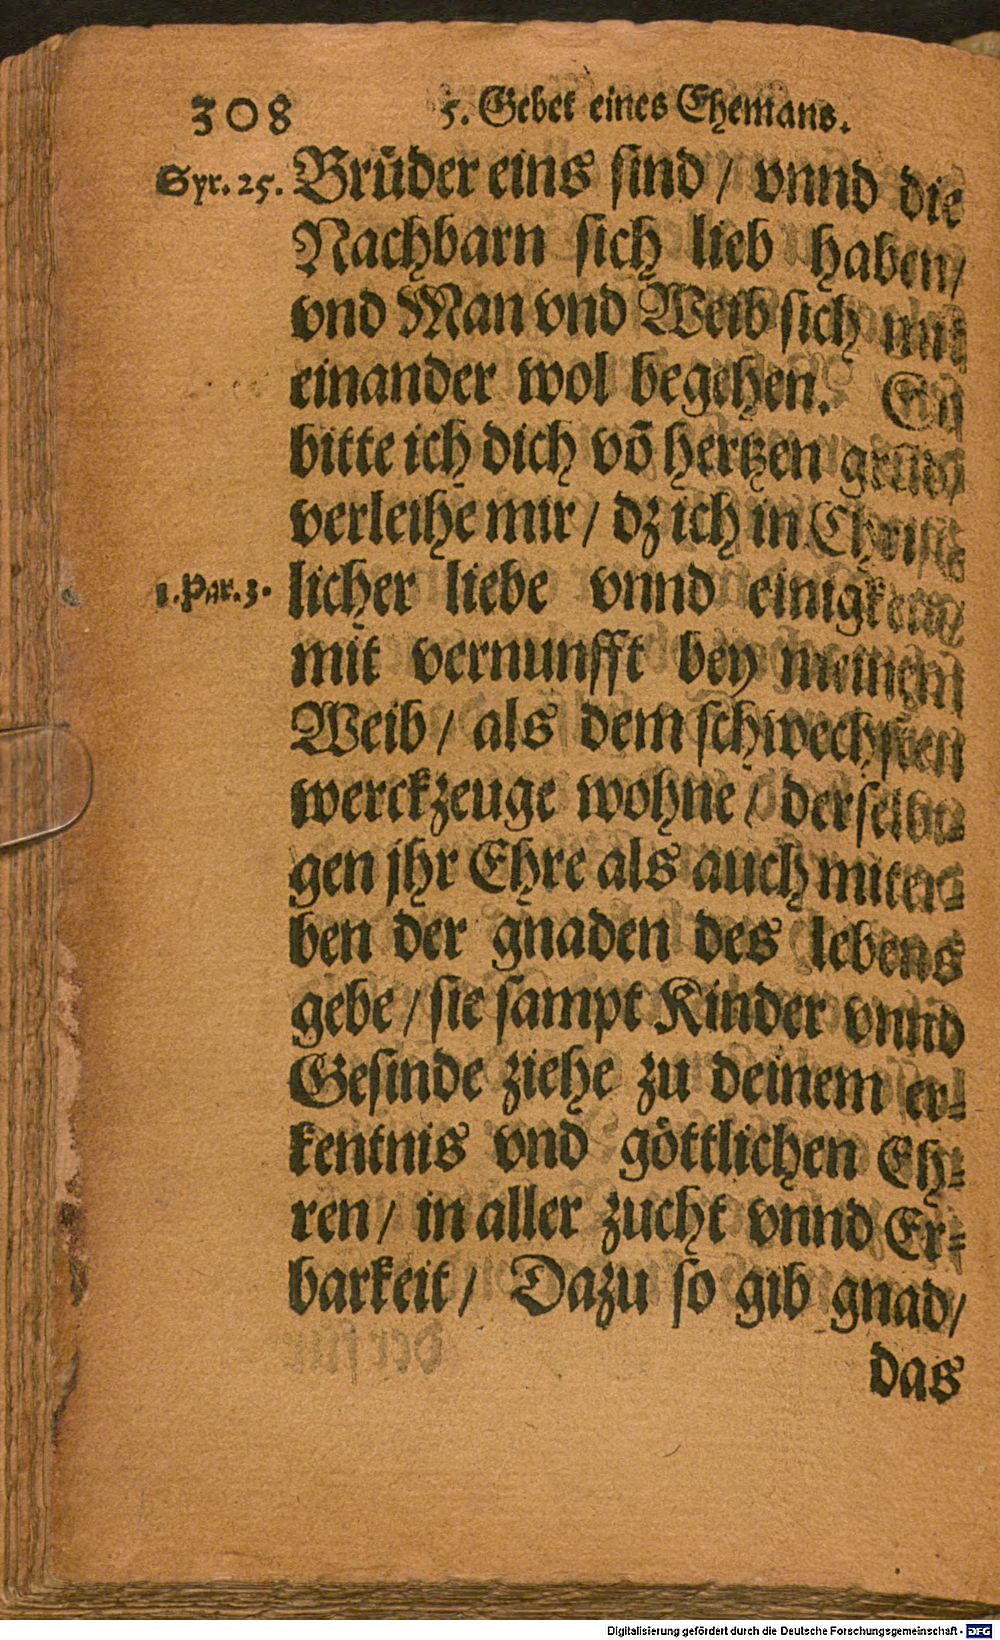 308 5. Gebet eines Ehemans.
Syr. 25. Brüder eins sind / vnnd die
Nachbarn sich lieb haben /
vnd Man vnd Weib sich mit
einander wol begehen.
bitte ich dich võ hertzen grũd /
verleihe mir / dz ich in Christ⸗
1. Par. 3. licher liebe vnnd einigkeit /
mit vernunfft bey meinem
Weib / als dem schwechsten
werckzeuge wohne / derselbi⸗
gen jhr Ehre als auch miter⸗
ben der gnaden des lebens
gebe / sie sampt Kinder vnnd
Gesinde ziehe zu deinem er⸗
kentnis vnd göttlichen Eh⸗
ren / in aller zucht vnnd Er⸗
barkeit / Dazu so gib gnad /
das
Digitalisierung gefördert durch die Deutsche Forschungsgemeinschaft - DFG